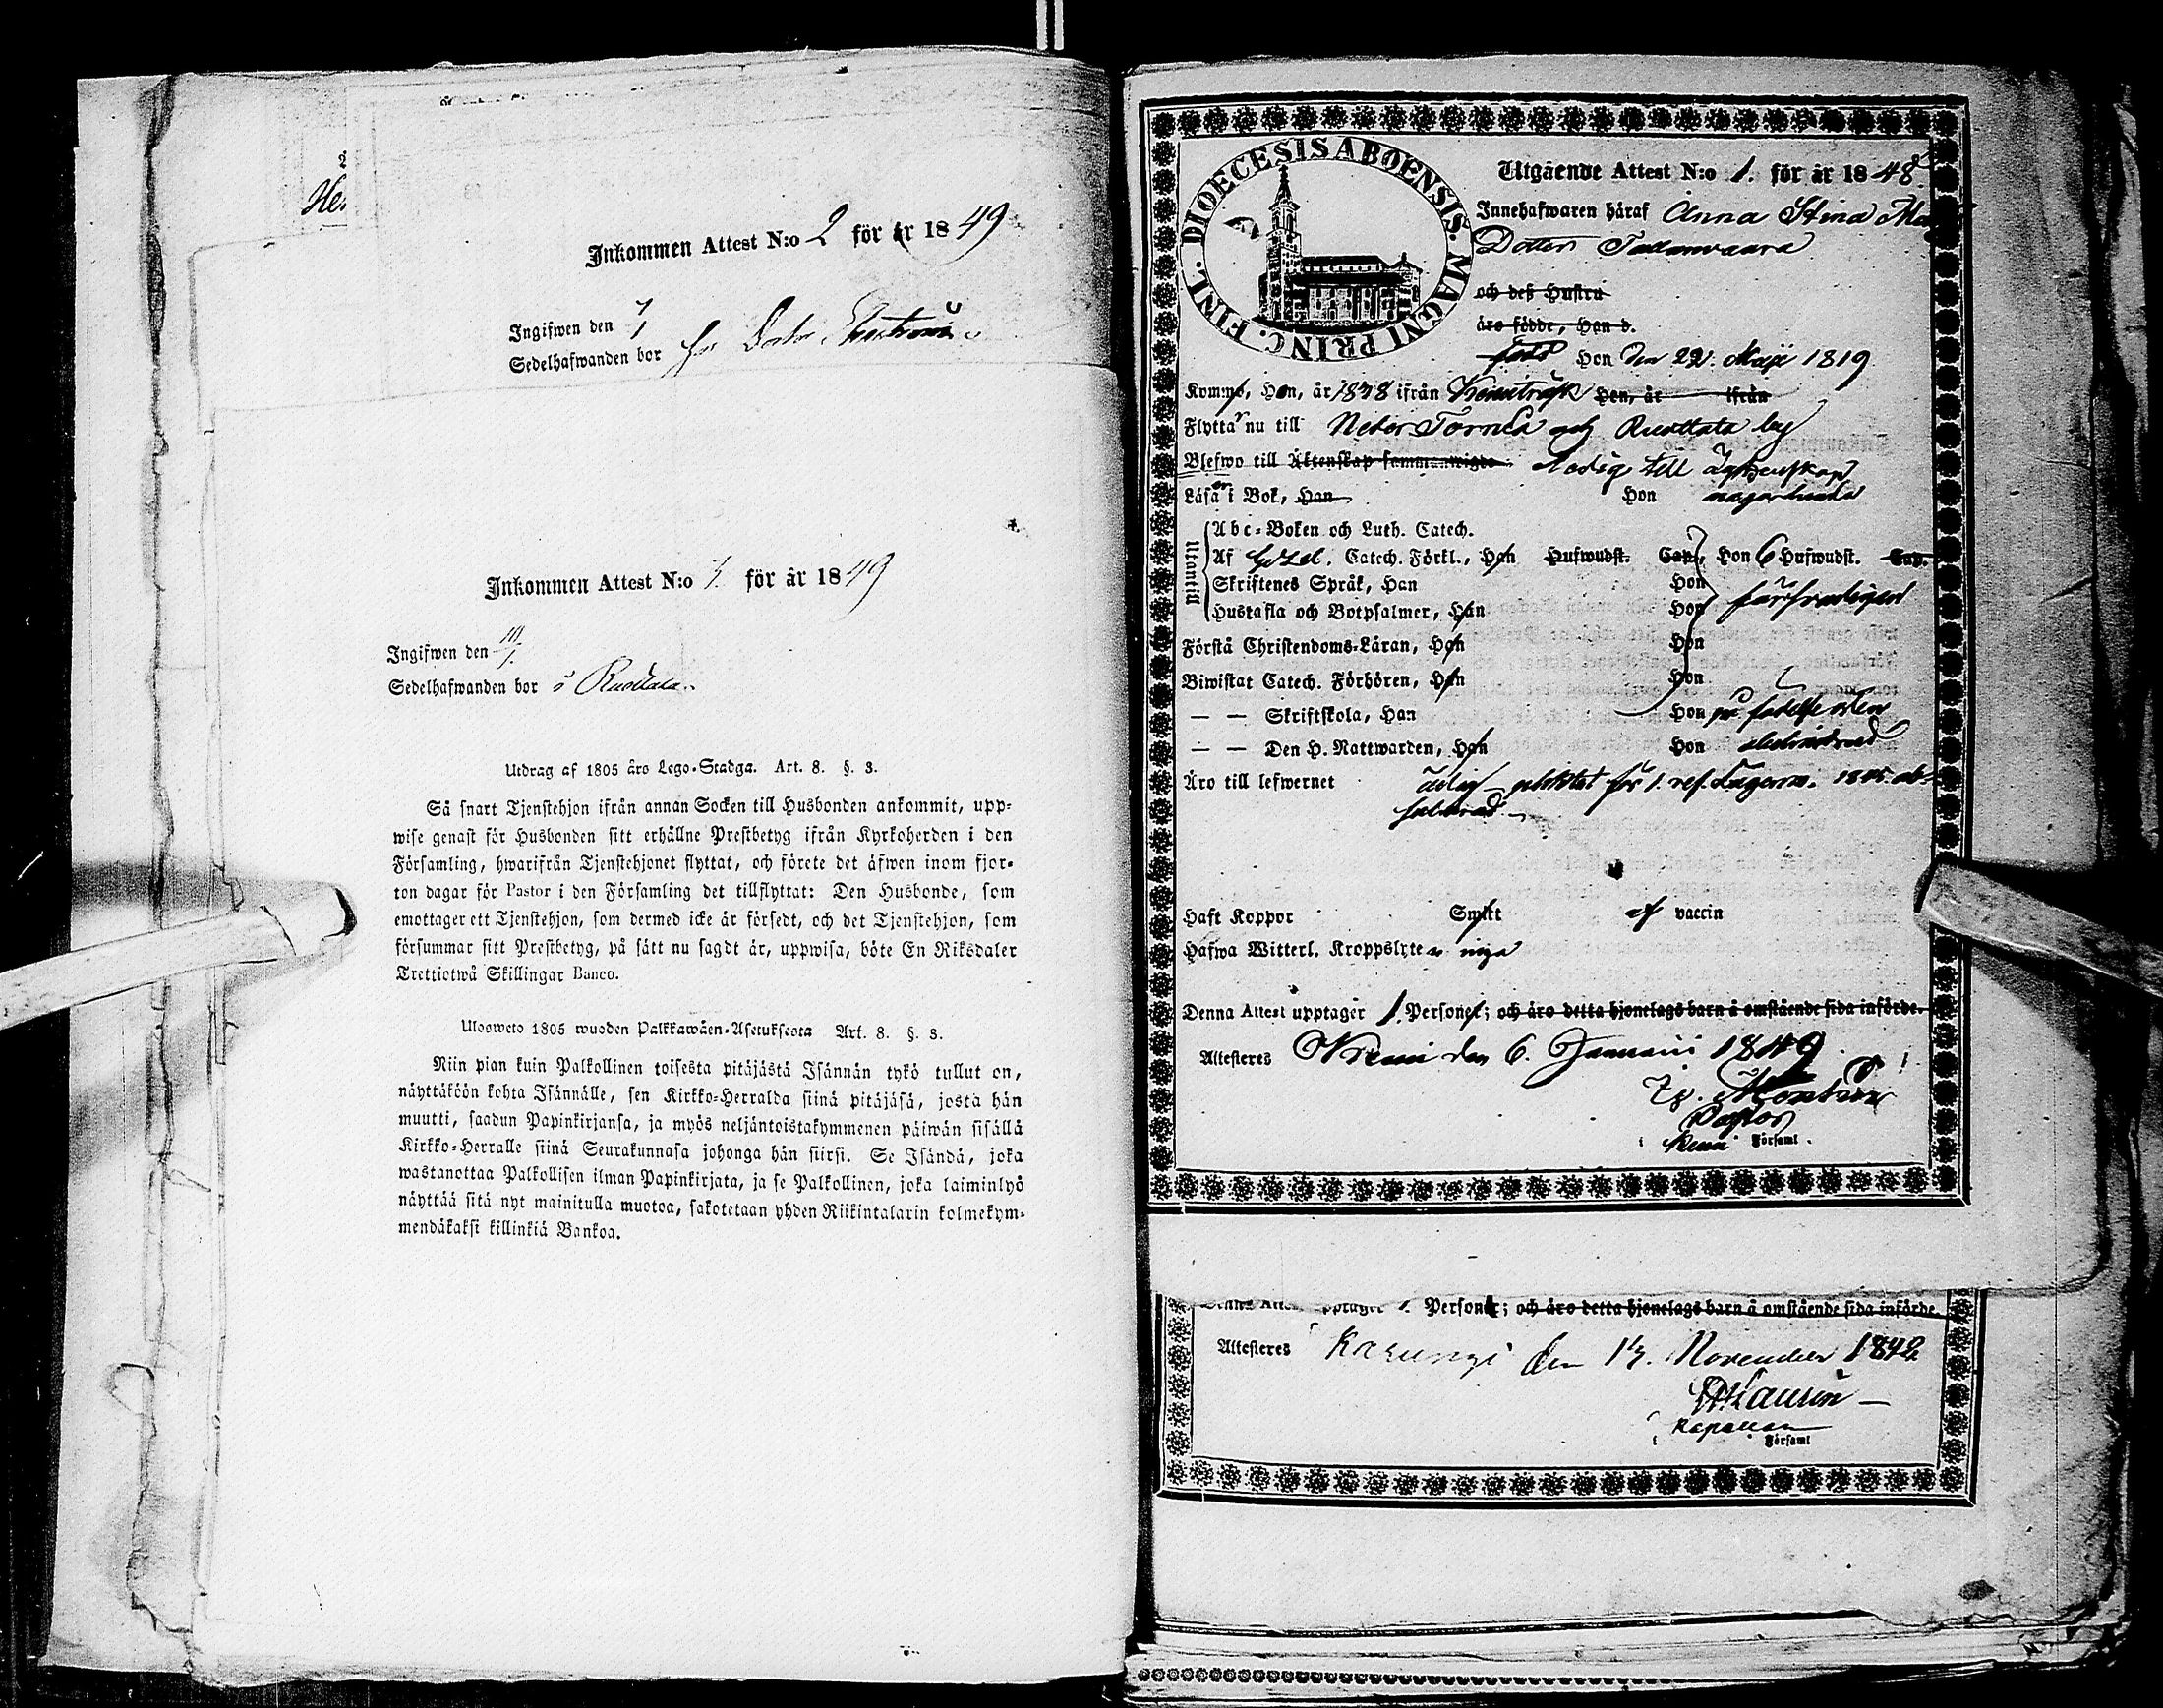 Inkommen Attest N:o 2 för år 1849
Ingifwen den
Sedelhafwanden bor hos
Inkommen Attest N:o för år 1849
Ingifwen den
Sedelhafwanden bor i Ruottala.
Utdrag af 1805 års Lego-Stadga. Art. 8. §. 3.
Så snart Tjenstehjon ifrån annan Socken till Husbonden ankommit, upp-
wise genast för Husbonden sitt erhållne Prestbetyg ifrån Kyrkoherden i den
Församling, hwarifrån Tjenstehjonet flyttat, och förete det äfwen inom fjor-
ton dagar för Pastor i den Församling det tillflyttat: Den Husbonde, som
emottager ett Tjenstehjon, som dermed icke är försedt, och det Tjenstehjon, som
försummar sitt Prestbetyg, på sätt nu sagdt är, uppwisa, böte En Riksdaler
Trettiotwå Skillingar Banco.
Ulosweto 1805 wuoden Palkkawäen-Asetuksesta Art. 8. §. 3.
Niin pian kuin Palkollinen toisesta pitäjästä Isännän tykö tullut on,
näyttäköön kohta Isännälle, sen Kirkko-Herralda siinä pitäjäsä, josta hän
muutti, saadun Papinkirjansa, ja myös neljäntoistakymmenen päiwän sisällä
Kirkko-Herralle siinä Seurakunnasa johonga hän siirsi. Se Isändä, joka
wastanottaa Palkollisen ilman Papinkirjata, ja se Palkollinen, joka laiminlyö
näyttää sitä nyt mainitulla muotoa, sakotetaan yhden Riikintalarin kolmekym-
mendäkaksi killinkiä Bankoa.
DIOECESIS ABOENSIS. MAGNI PRINC. FINL.
Utgående Attest N:o 1. för år 1848.
Innehafwaren häraf Anna Stina
Dotter
och deß Hustru
äro födde, Han d.
född Hon den 22. Maji 1819
Komme, Hon, år 1838 ifrån Kemiträsk Hen, år ifrån
Flyttar nu till Neder Torneå och Ruottala by
Blefwo till Äktenskap sammanwigde ledig till Äktenskap
Läsa i Bok, Han Hon någorlunda
Utantill
Abc-Boken och Luth. Catech.
Af Catech. Förkl., Han Hufwudst. Cap., Hon 6 Hufwudst. Cap.
Skriftenes Språk, Han Hon
Hustafla och Botpsalmer, Han Hon försvarligen
Förstå Christendoms-Läran, Han Hon
Biwistat Catech. Förhören, Han Hon
— — Skriftskola, Han Hon på födelseorten
— — Den H. Nattwarden, Han Hon
Äro till lefwernet
Haft Koppor Smitt af vaccin
Hafwa Witterl. Kroppslyten inga
Denna Attest upptager 1. Personer; och äro detta hjonelags barn å omstående sida införde.
Attesteres Kemi den 6. Januarii 1849
Pastor
i Kemi Församl.
Denna Attest upptager 1. Personer; och äro detta hjonelags barn å omstående sida införde.
Attesteres Karungi den November 1842
Kapellan
i Församl